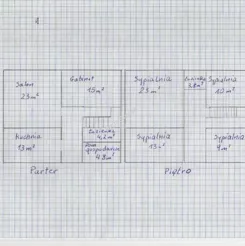 4
Salon
23 m²
Gabinet
15 m²
Kuchnia
13 m²
Łazienka
4,2 m²
Pom.
gospodarcze
4,8 m²
Parter
Sypialnia
23 m²
Łazienka
Sypialnia
10 m²
Sypialnia
13 m²
Sypialnia
9 m²
Piętro